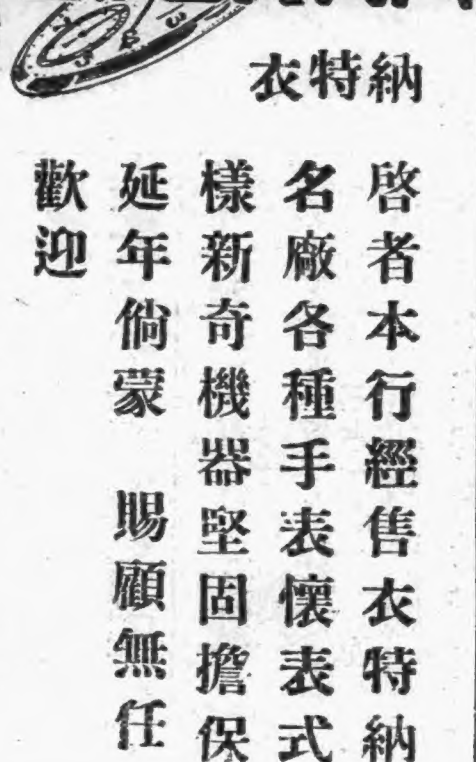 衣特納
啓者本行經售衣特納
名廠各種手表懷表式
樣新奇機器堅固擔保
延年倘蒙　賜顧無任
歡迎